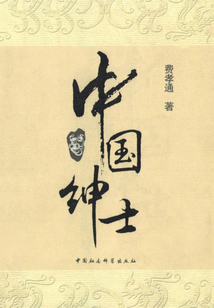 中国绅士
费孝通 著
中国社会科学出版社